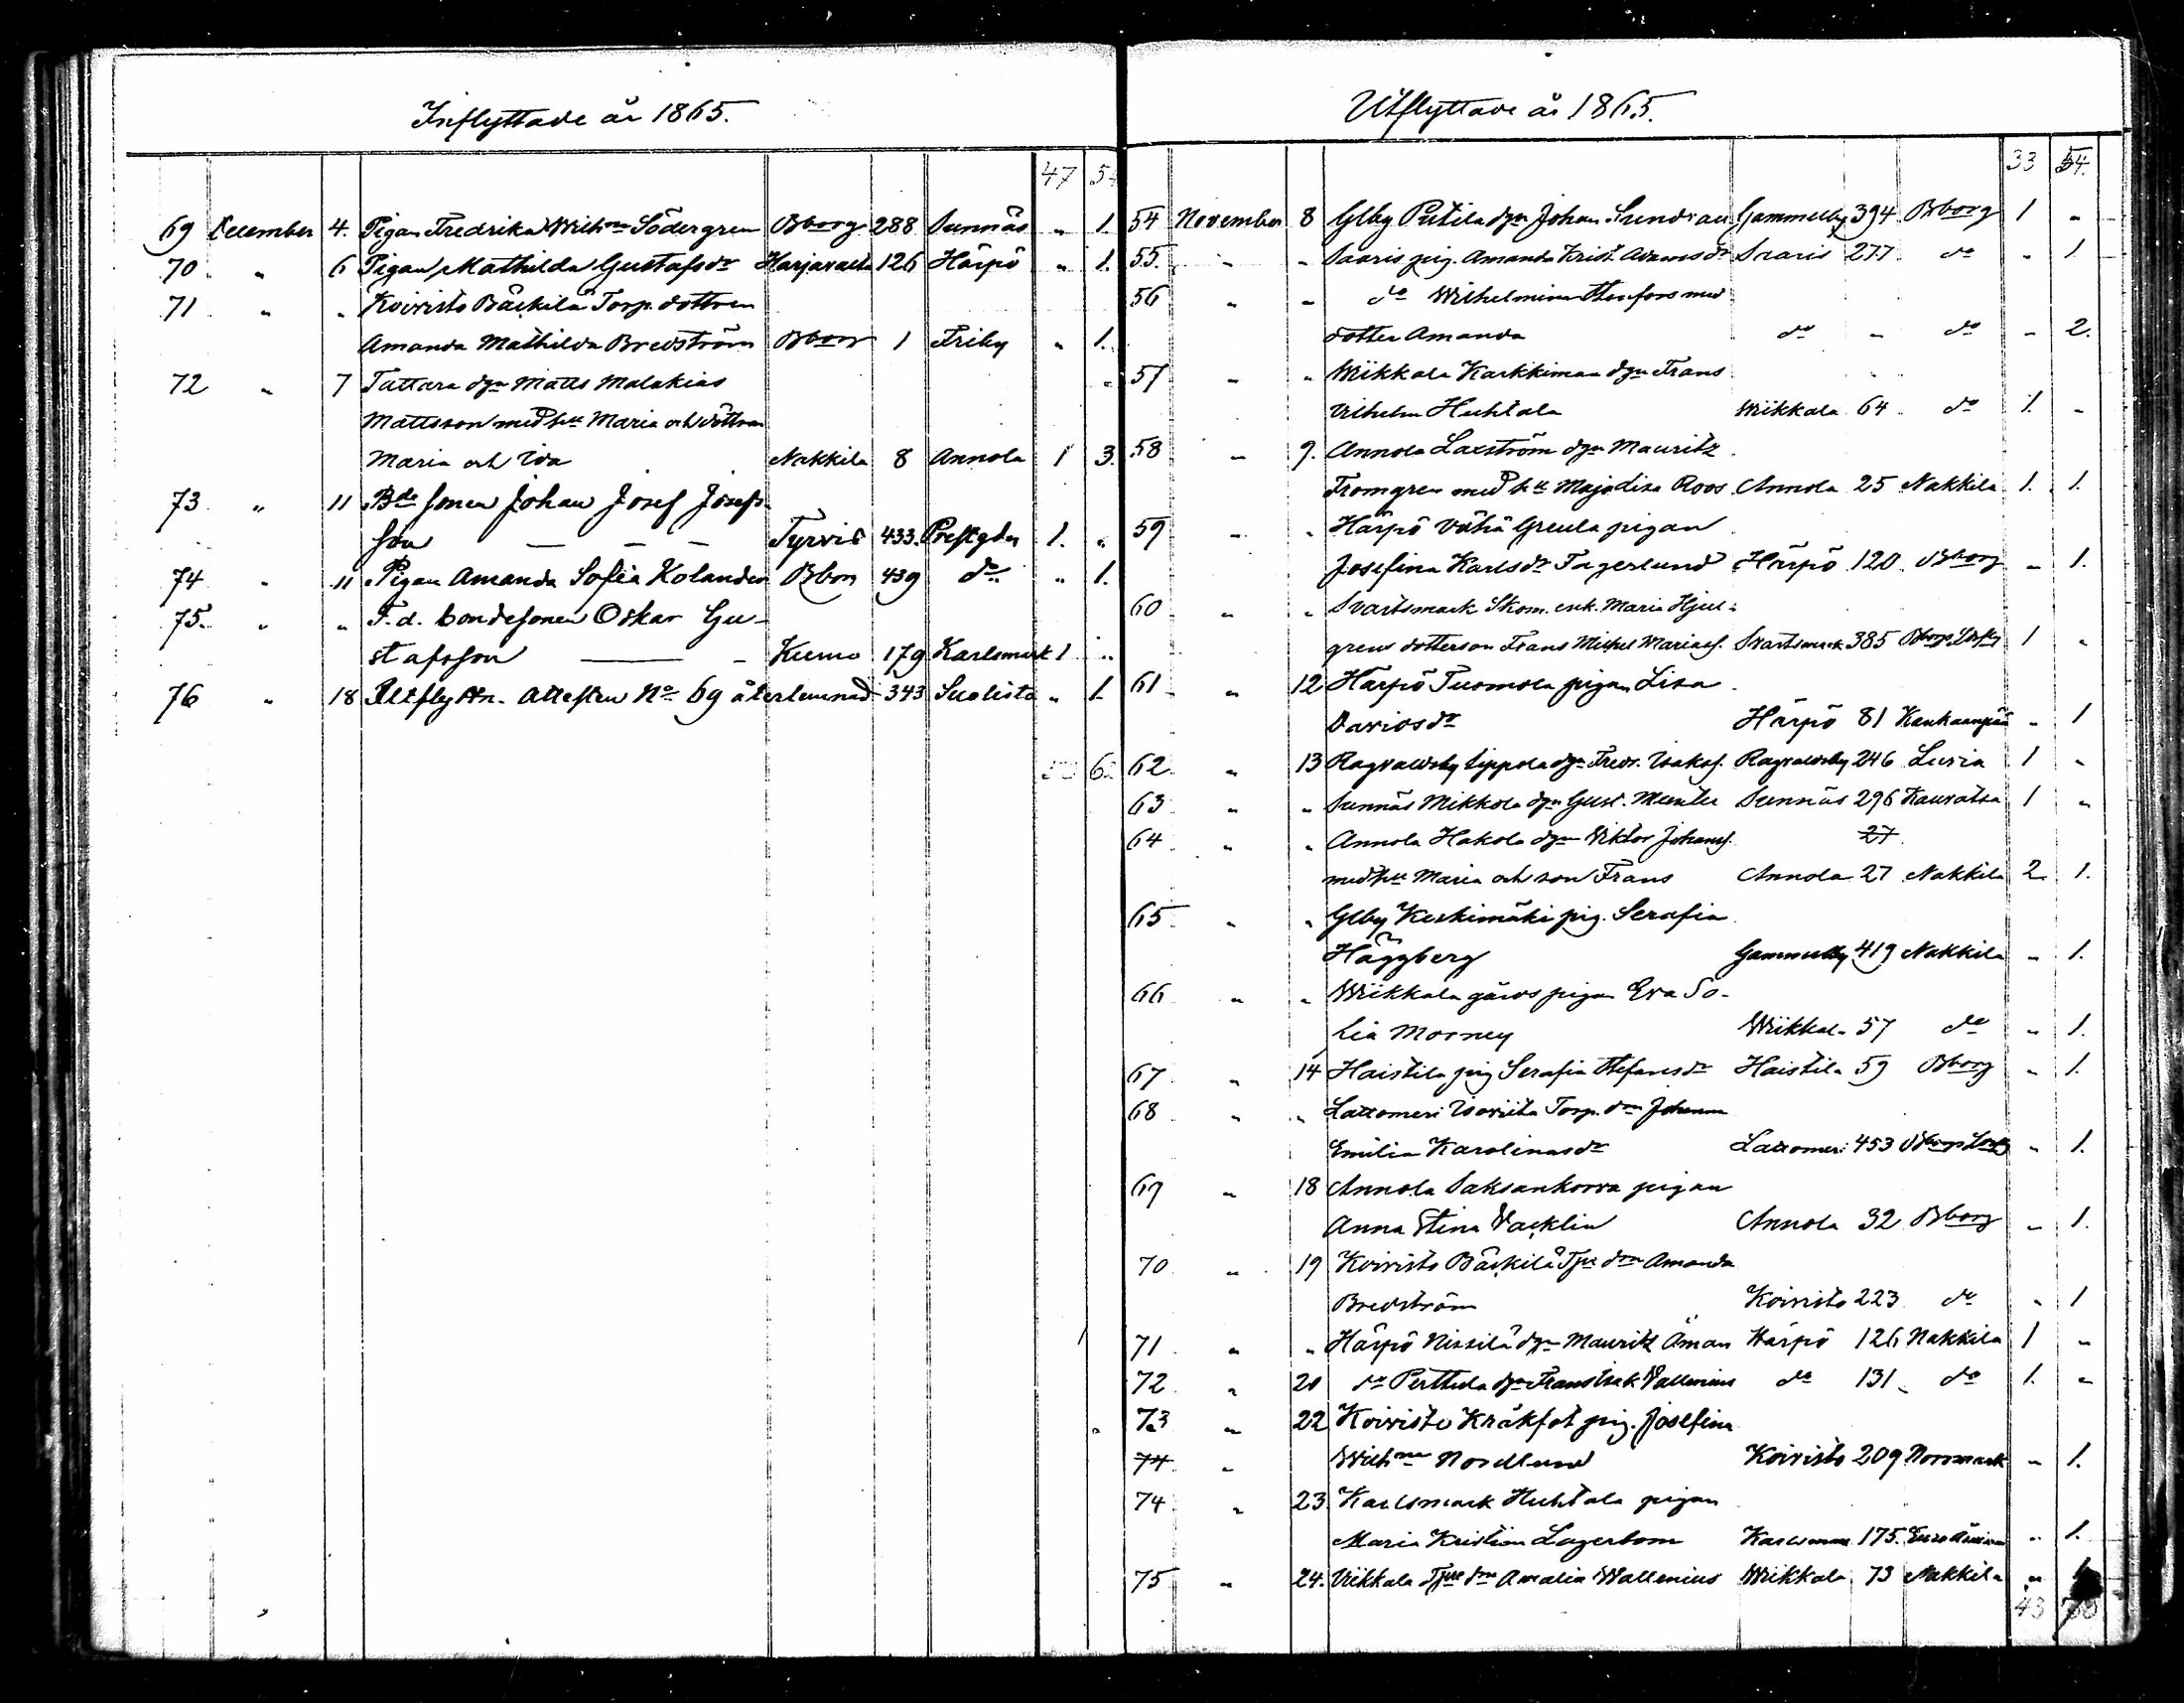 Inflyttade år 1865.
47 54
69 December 4. Pigan Fredrika Wilhna Södergren Bborg 288 Sunnäs " 1.
70 " 6 Pigan Mathilda Gustafsdr Harjavalta 126 Härpö " 1.
71 " " Koivisto Bäckilä Torp. dottren
Amanda Mathilda Bredström Bborg 1 Friby " 1.
72 " 7 Tattara dgn Matts Malakias
Mattsson med hu Maria och döttrar
Maria och Ida Nakkila 8 Annola 1 3.
73 " 11 Bde sonen Johan Josef Josefs-
son — — — Tyrvis 433. Prestgdn 1. "
74 " 11 Pigan Amanda Sofia Kolander Bborg 439 do " 1.
75. " " F.d. bondesonen Oskar Gu-
stafsson — Kumo 179 Karlsmark 1 "
76 " 18 Utflyttn. attesten No 69 återlemnad 343 Suolisto " 1.
Utflyttade år 1865.
33 54.
54 November 8 Glby Putila dgn Johan Sundvall Gammelby 394 Bborg 1 "
55. " " Saaris pig. Amanda Krist. Adamsdr Saaris 277 do " 1
56 " " do Wilhelmina med
dotter Amanda do " do " 2.
57 " " Wiikkala Karkkiman dgn Frans
Vilhelm Huhtala Wiikkala 64 do 1. "
58 " 9. Annola Laxström dgn Mauritz
Fromgren med hu Maja Lisa Roos Annola 25 Nakkila 1. 1.
59 " " Härpö Vähä Greula pigan
Josefina Karlsdr Fagerlund Härpö 120 Bborg " 1.
60 " " Svartsmark Skom. enk. Maria Hjul-
grens dotterson Frans Michel Mariass. Svartsmark 385 1 "
61 " 12 Härpö Tuomola pigan Lisa
Davidsdr Härpö 81 Kankaanpää " 1
62 " 13 Ragvaldsby Lippola dgn Fredr. Isakss. Ragvaldsby 246 Luvia 1 "
63 " " Sunnäs Mikkola dgn Gust. Sunnäs 296 Kauvatsa 1 "
64 " " Annola Hakola dgn Viktor Johanss. 27
med hu Maria och son Frans Annola 27 Nakkila 2 1.
65 " " Glby Keskimäki pig. Serafia
Häggberg Gammelby 419 Nakkila " 1.
66 " " Wiikkala gårds pigan Eva So-
fia Morney Wiikkala 57 do " 1.
67 " 14 Haistila pig Serafia Stefansdr Haistila 59 Bborg " 1.
68 " " Lattomeri Isoviita Torp. drn Johanna
Emilia Karolinasdr Lattomeri 453 " 1.
69 " 18 Annola Saksankorva pigan
Anna Stina Wacklin Annola 32 Bborg " 1.
70 " 19 Koivisto Bäckilä Tpe drn Amanda
Bredström Koivisto 223 do " 1
71 " " Härpö Nissilä dgn Mauritz Åman Härpö 126 Nakkila 1 "
72 " 20 do Perttula dgn Frans Isak Vallenius do 131 do 1. "
73 " 22 Koivisto Kråkfot pig. Josefina
74 " Wilhna Nordlund Koivisto 209 Norrmark " 1.
74 " 23 Karlsmark Huhtala pigan
Maria Kristina Lagerbom Karlsmark 175. " 1.
75 " 24. Viikkala Tpe drn Amalia Wallenius Wiikkala 73 Nakkila " 1
43